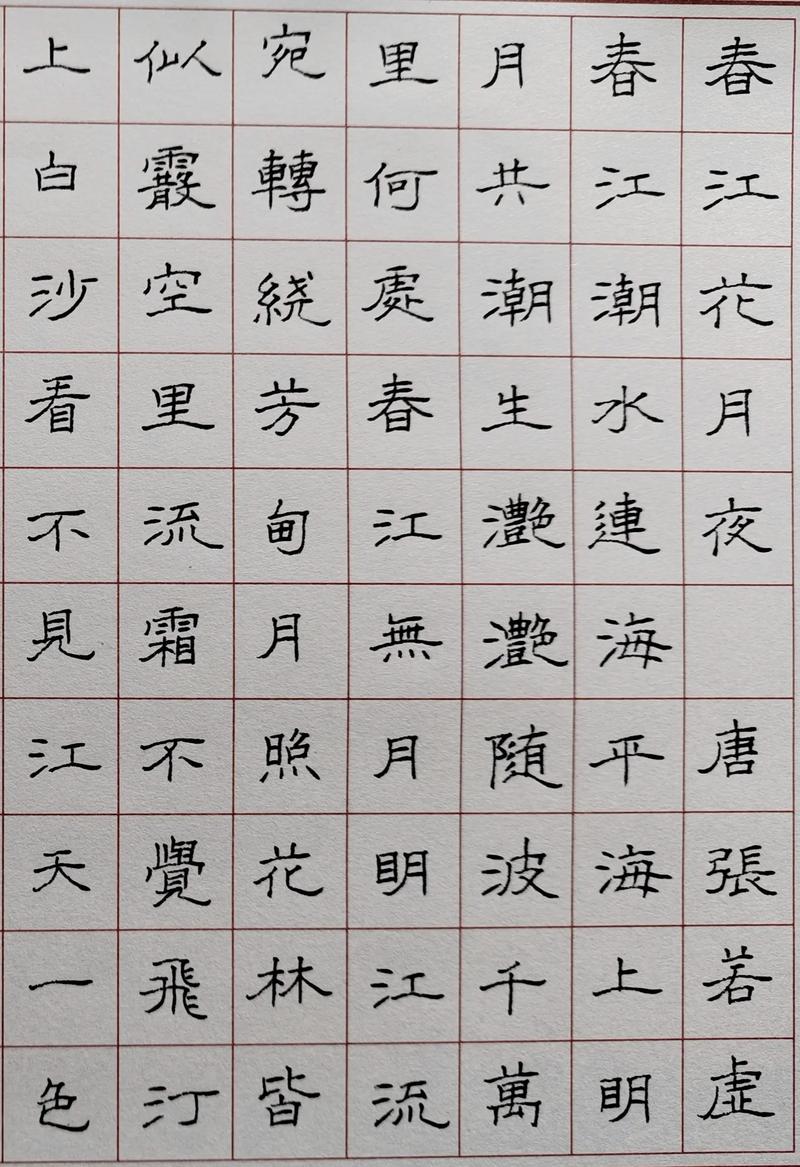 春江花月夜 唐張若虛
春江潮水連海平海上明
月共潮生灧灧随波千萬
里何處春江無月明江流
宛轉繞芳甸月照花林皆
似人霰空里流霜不覺飛汀
上白沙看不見江天一色